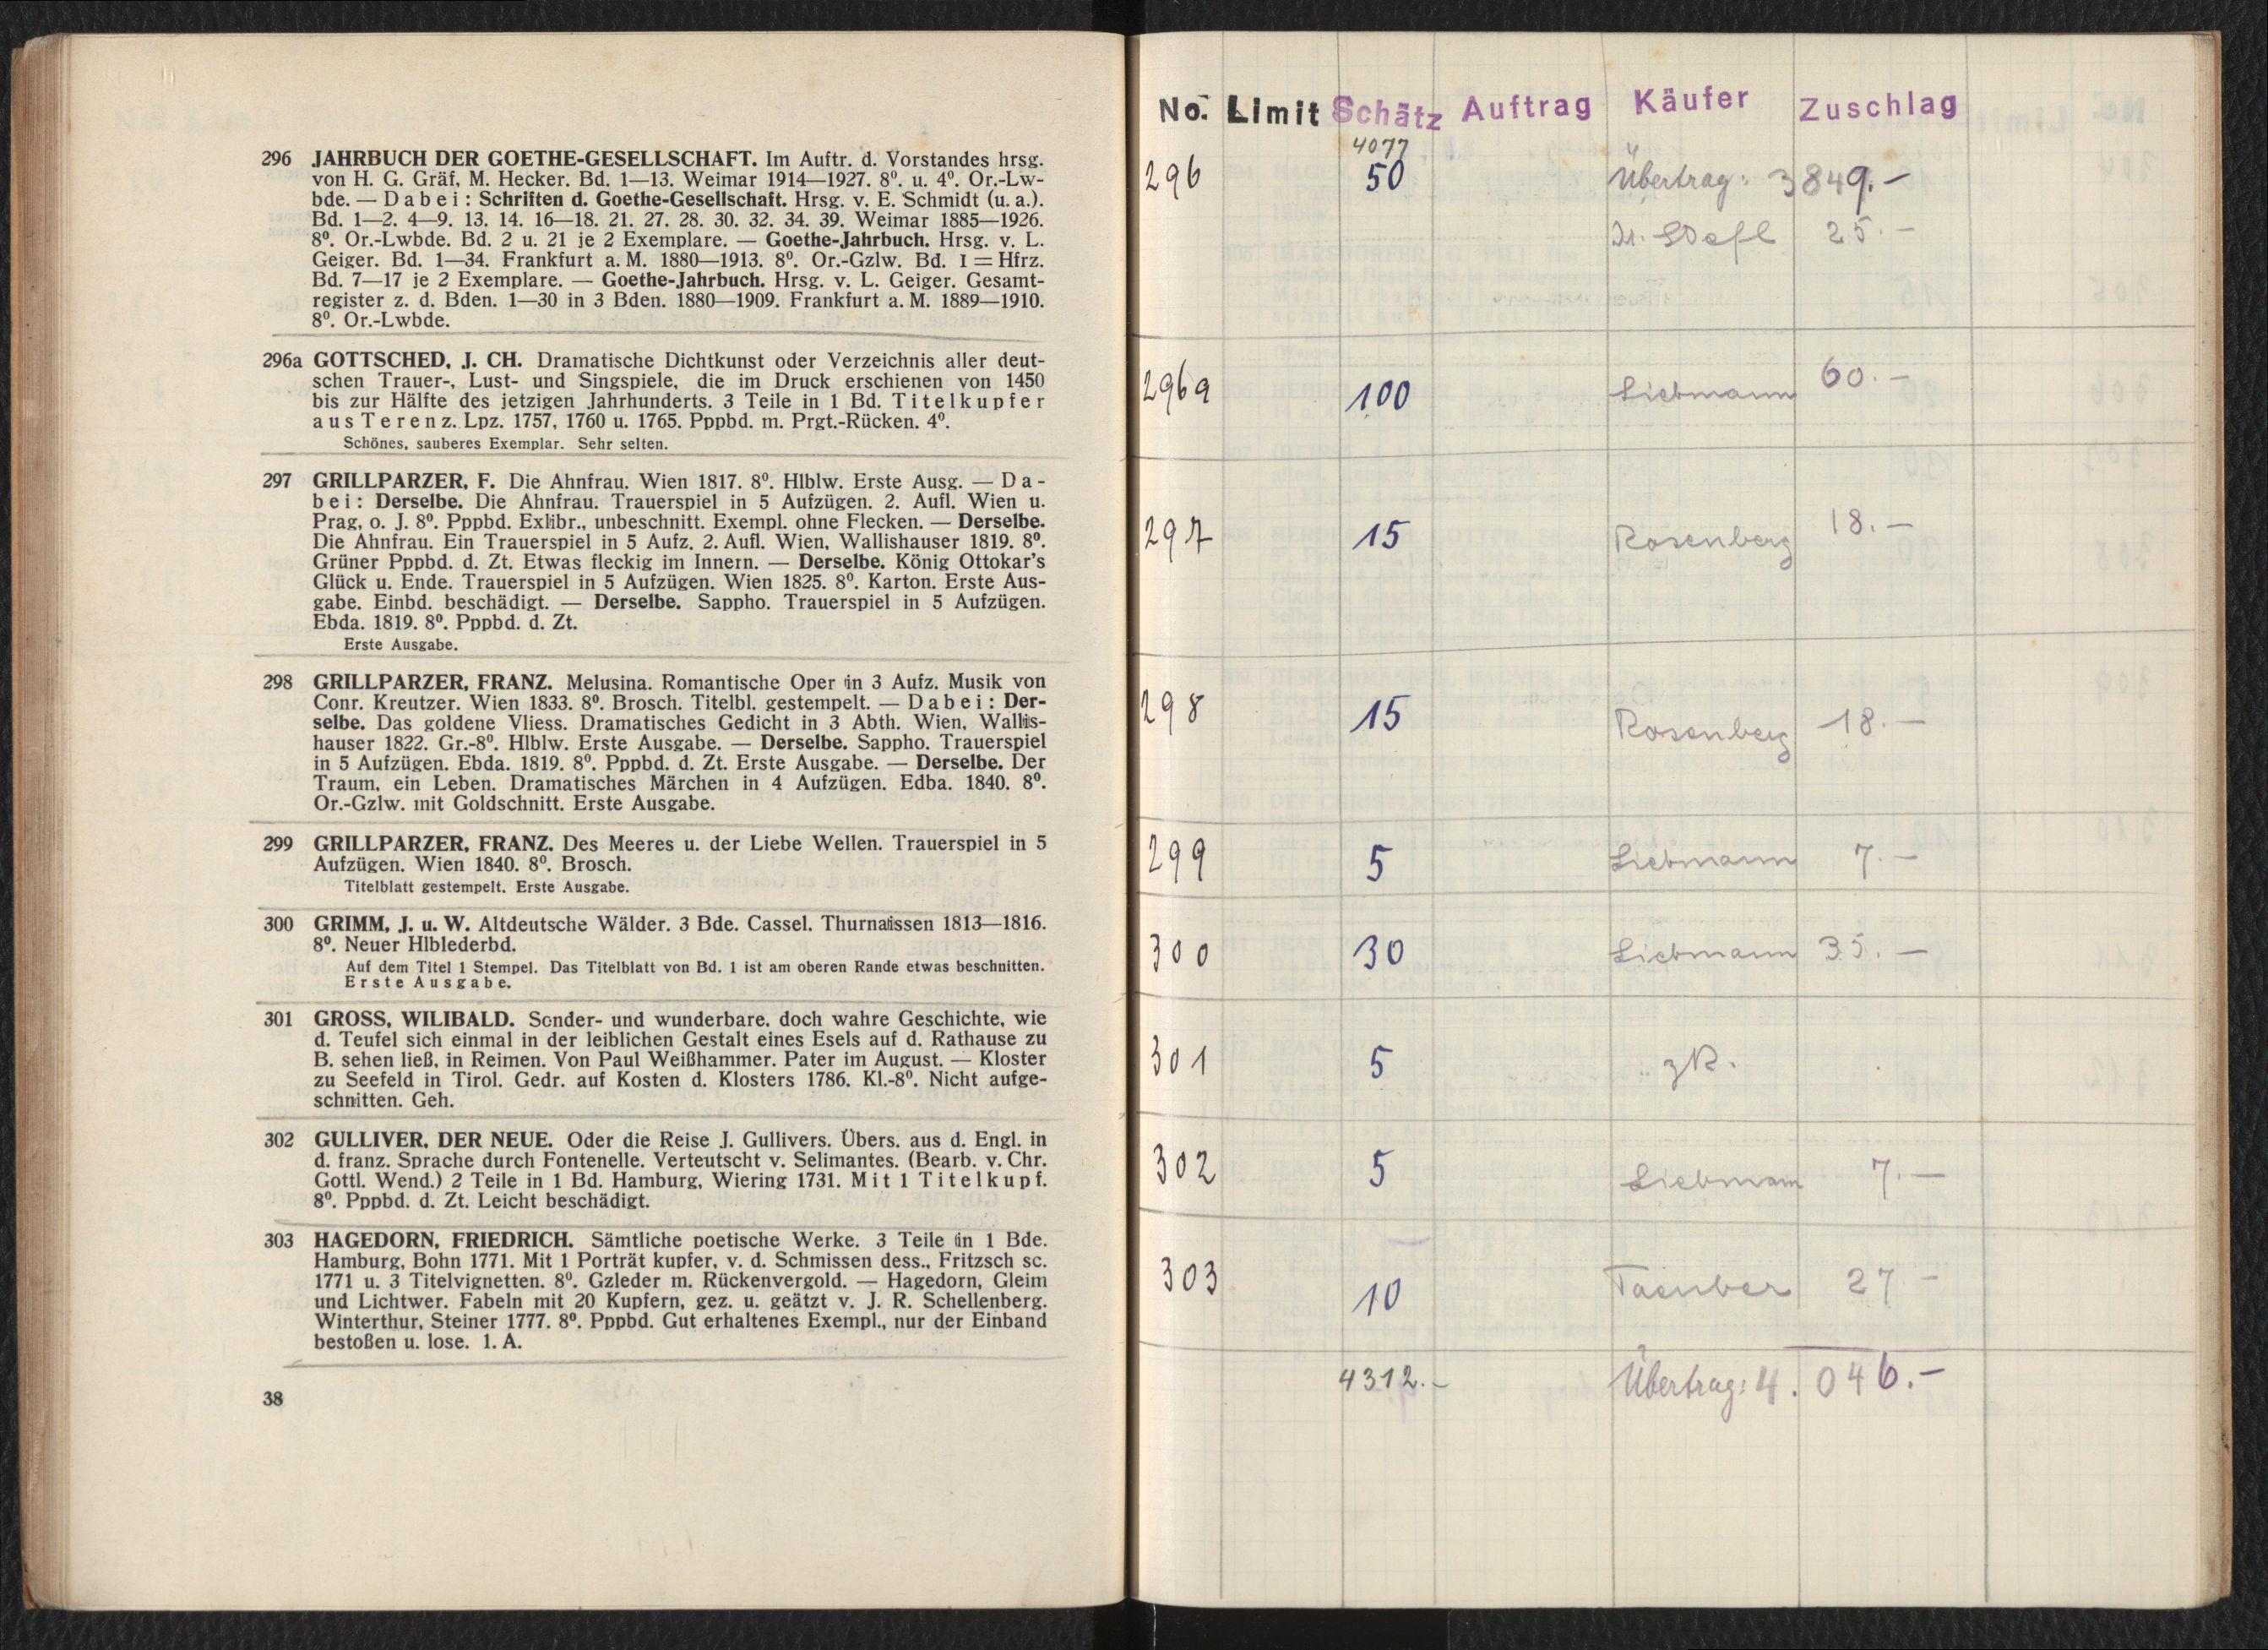 296 JAHRBUCH DER GOETHE-GESELLSCHAFT. Im Auftr. d. Vorstandes hrsg.
von H. G. Gräf, M. Hecker. Bd. 1—13. Weimar 1914—1927. 8⁰. u. 4⁰. Or.-Lw-
bde. — Dabei: Schriften d. Goethe-Gesellschaft. Hrsg. v. E. Schmidt (u. a.).
Bd. 1—2. 4—9. 13. 14. 16—18. 21. 27. 28. 30. 32. 34. 39. Weimar 1885—1926.
8⁰. Or.-Lwbde. Bd. 2 u. 21 je 2 Exemplare. — Goethe-Jahrbuch. Hrsg. v. L.
Geiger. Bd. 1—34. Frankfurt a. M. 1880—1913. 8⁰. Or.-Gzlw. Bd. 1 = Hfrz.
Bd. 7—17 je 2 Exemplare. — Goethe-Jahrbuch. Hrsg. v. L. Geiger. Gesamt-
register z. d. Bden. 1—30 in 3 Bden. 1880—1909. Frankfurt a. M. 1889—1910.
8⁰. Or.-Lwbde.
296a GOTTSCHED, J. CH. Dramatische Dichtkunst oder Verzeichnis aller deut-
schen Trauer-, Lust- und Singspiele, die im Druck erschienen von 1450
bis zur Hälfte des jetzigen Jahrhunderts. 3 Teile in 1 Bd. Titelkupfer
aus Terenz. Lpz. 1757, 1760 u. 1765. Pppbd. m. Prgt.-Rücken. 4⁰.
Schönes, sauberes Exemplar. Sehr selten.
297 GRILLPARZER, F. Die Ahnfrau. Wien 1817. 8⁰. Hlblw. Erste Ausg. — Da-
bei: Derselbe. Die Ahnfrau. Trauerspiel in 5 Aufzügen. 2. Aufl. Wien u.
Prag, o. J. 8⁰. Pppbd. Exlibr., unbeschnitt. Exempl. ohne Flecken. — Derselbe.
Die Ahnfrau. Ein Trauerspiel in 5 Aufz. 2. Aufl. Wien, Wallishauser 1819. 8⁰.
Grüner Pppbd. d. Zt. Etwas fleckig im Innern. — Derselbe. König Ottokar's
Glück u. Ende. Trauerspiel in 5 Aufzügen. Wien 1825. 8⁰. Karton. Erste Aus-
gabe. Einbd. beschädigt. — Derselbe. Sappho. Trauerspiel in 5 Aufzügen.
Ebda. 1819. 8⁰. Pppbd. d. Zt.
Erste Ausgabe.
298 GRILLPARZER, FRANZ. Melusina. Romantische Oper in 3 Aufz. Musik von
Conr. Kreutzer. Wien 1833. 8⁰. Brosch. Titelbl. gestempelt. — Dabei: Der-
selbe. Das goldene Vliess. Dramatisches Gedicht in 3 Abth. Wien, Wallis-
hauser 1822. Gr.-8⁰. Hlblw. Erste Ausgabe. — Derselbe. Sappho. Trauerspiel
in 5 Aufzügen. Ebda. 1819. 8⁰. Pppbd. d. Zt. Erste Ausgabe. — Derselbe. Der
Traum, ein Leben. Dramatisches Märchen in 4 Aufzügen. Edba. 1840. 8⁰.
Or.-Gzlw. mit Goldschnitt. Erste Ausgabe.
299 GRILLPARZER, FRANZ. Des Meeres u. der Liebe Wellen. Trauerspiel in 5
Aufzügen. Wien 1840. 8⁰. Brosch.
Titelblatt gestempelt. Erste Ausgabe.
300 GRIMM, J. u. W. Altdeutsche Wälder. 3 Bde. Cassel. Thurnaissen 1813—1816.
8⁰. Neuer Hlblederbd.
Auf dem Titel 1 Stempel. Das Titelblatt von Bd. 1 ist am oberen Rande etwas beschnitten.
Erste Ausgabe.
301 GROSS, WILIBALD. Sonder- und wunderbare, doch wahre Geschichte, wie
d. Teufel sich einmal in der leiblichen Gestalt eines Esels auf d. Rathause zu
B. sehen ließ, in Reimen. Von Paul Weißhammer. Pater im August. — Kloster
zu Seefeld in Tirol. Gedr. auf Kosten d. Klosters 1786. Kl.-8⁰. Nicht aufge-
schnitten. Geh.
302 GULLIVER, DER NEUE. Oder die Reise J. Gullivers. Übers. aus d. Engl. in
d. franz. Sprache durch Fontenelle. Verteutscht v. Selimantes. (Bearb. v. Chr.
Gottl. Wend.) 2 Teile in 1 Bd. Hamburg, Wiering 1731. Mit 1 Titelkupf.
8⁰. Pppbd. d. Zt. Leicht beschädigt.
303 HAGEDORN, FRIEDRICH. Sämtliche poetische Werke. 3 Teile in 1 Bde.
Hamburg, Bohn 1771. Mit 1 Porträt kupfer, v. d. Schmissen dess., Fritzsch sc.
1771 u. 3 Titelvignetten. 8⁰. Gzleder m. Rückenvergold. — Hagedorn, Gleim
und Lichtwer. Fabeln mit 20 Kupfern, gez. u. geätzt v. J. R. Schellenberg.
Winterthur, Steiner 1777. 8⁰. Pppbd. Gut erhaltenes Exempl., nur der Einband
bestoßen u. lose. 1. A.
38
No. Limit Schätz Auftrag Käufer Zuschlag
4077
296 50 Übertrag: 3849.-
Dr. 25.-
296a 100 Liebmann 60.-
297 15 Rosenberg 18.-
298 15 Rosenberg 18.-
299 5 Liebmann 7.-
300 30 Liebmann 35.-
301 5 zR.
302 5 Liebmann 7.-
303 10 Taeuber 27-
4312.- Übertrag: 4.046.-